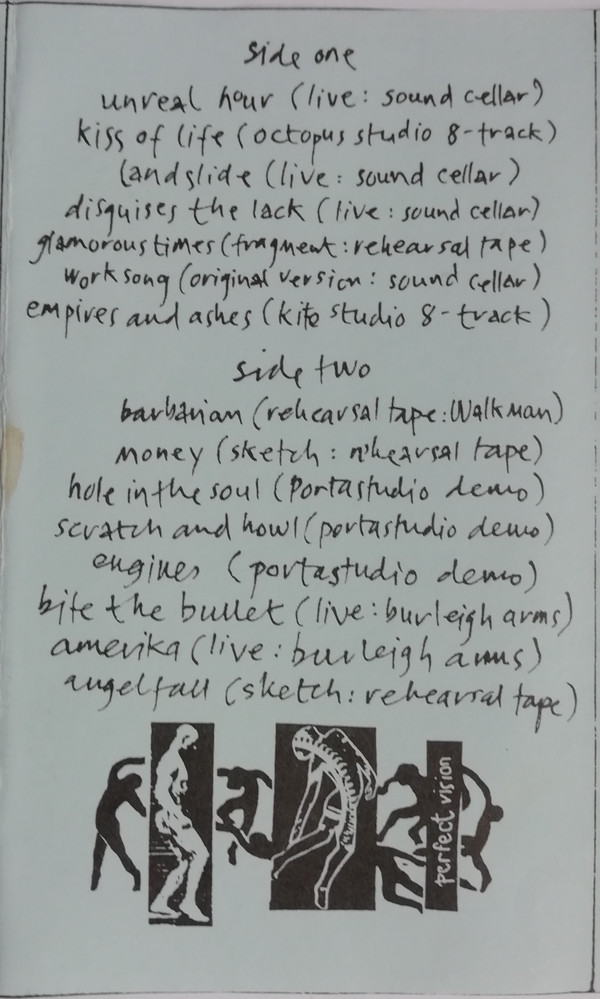 side one
unreal hour (live: sound cellar)
kiss of life (octopus studio 8-track)
landslide (live: sound cellar)
disguises the lack (live: sound cellar)
glamorous times (fragment: rehearsal tape)
work song (original version: sound cellar)
empires and ashes (kite studio 8-track)
side two
barbarian (rehearsal tape: Walkman)
money (sketch: rehearsal tape)
hole in the soul (Portastudio demo)
scratch and howl (portastudio demo)
engines (portastudio demo)
bite the bullet (live: burleigh arms)
amerika (live: burleigh arms)
angelfall (sketch: rehearsal tape)
perfect vision